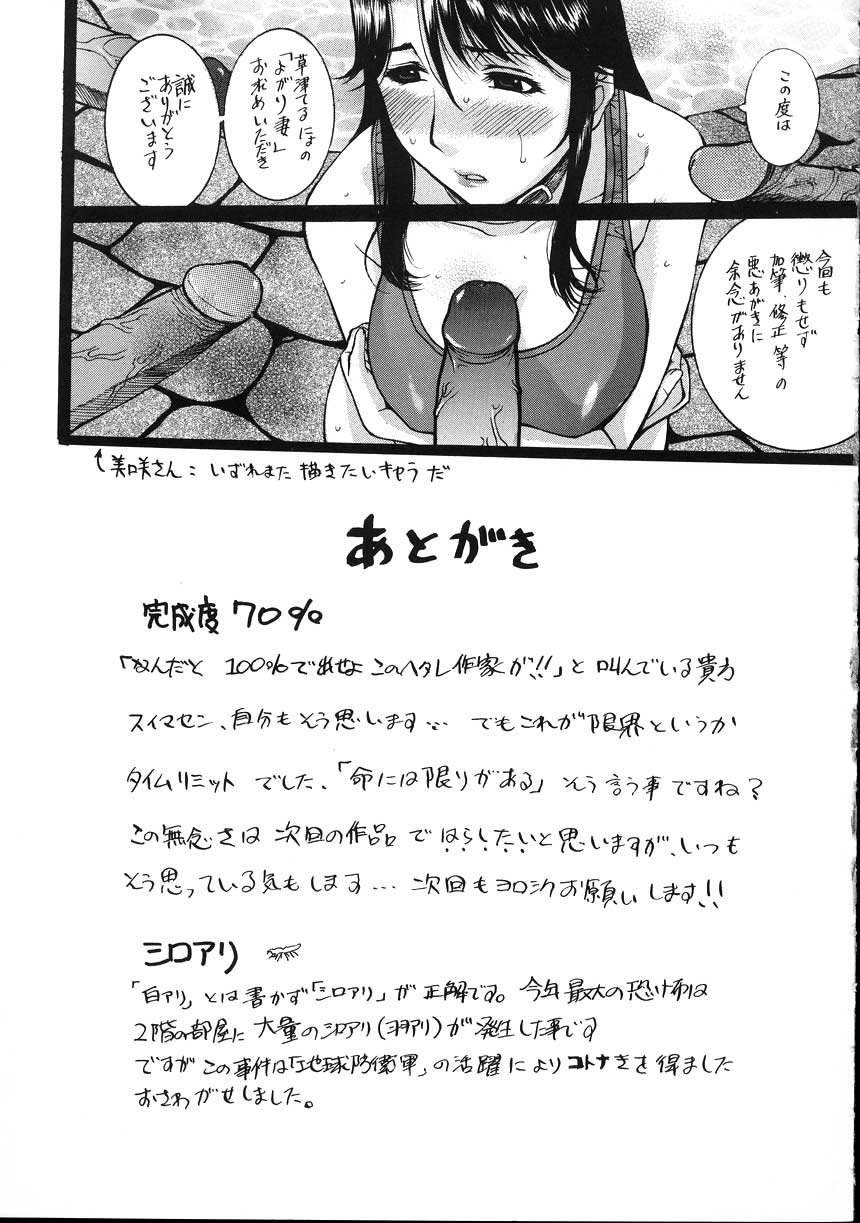 この度は
草津てるにょの
「よがり妻」
お求めいただき
誠に
ありがとう
ございます
今回も
懲りもせず
加筆、修正等の
悪あがきに
余念がありません
美咲さん：いずれまた描きたいキャラだ
あとがき
完成度70%
「なんだと 100%で出せよこのヘタレ作家が!!」と叫んでいる貴方
スイマセン、自分もそう思います… でもこれが限界というか
タイムリミットでした、「命には限りがある」そう言う事ですね?
この無念さは次回の作品ではらしたいと思いますが、いつも
そう思っている気もします… 次回もヨロシクお願いします!!
シロアリ
「白アリ」とは書かず「シロアリ」が正解です。今年最大の恐怖は
2階の部屋に大量のシロアリ(ヨアリ)が発生した事です
ですがこの事件は「地球防衛軍」の活躍によりコトナきを得ました
おさわがせしました。